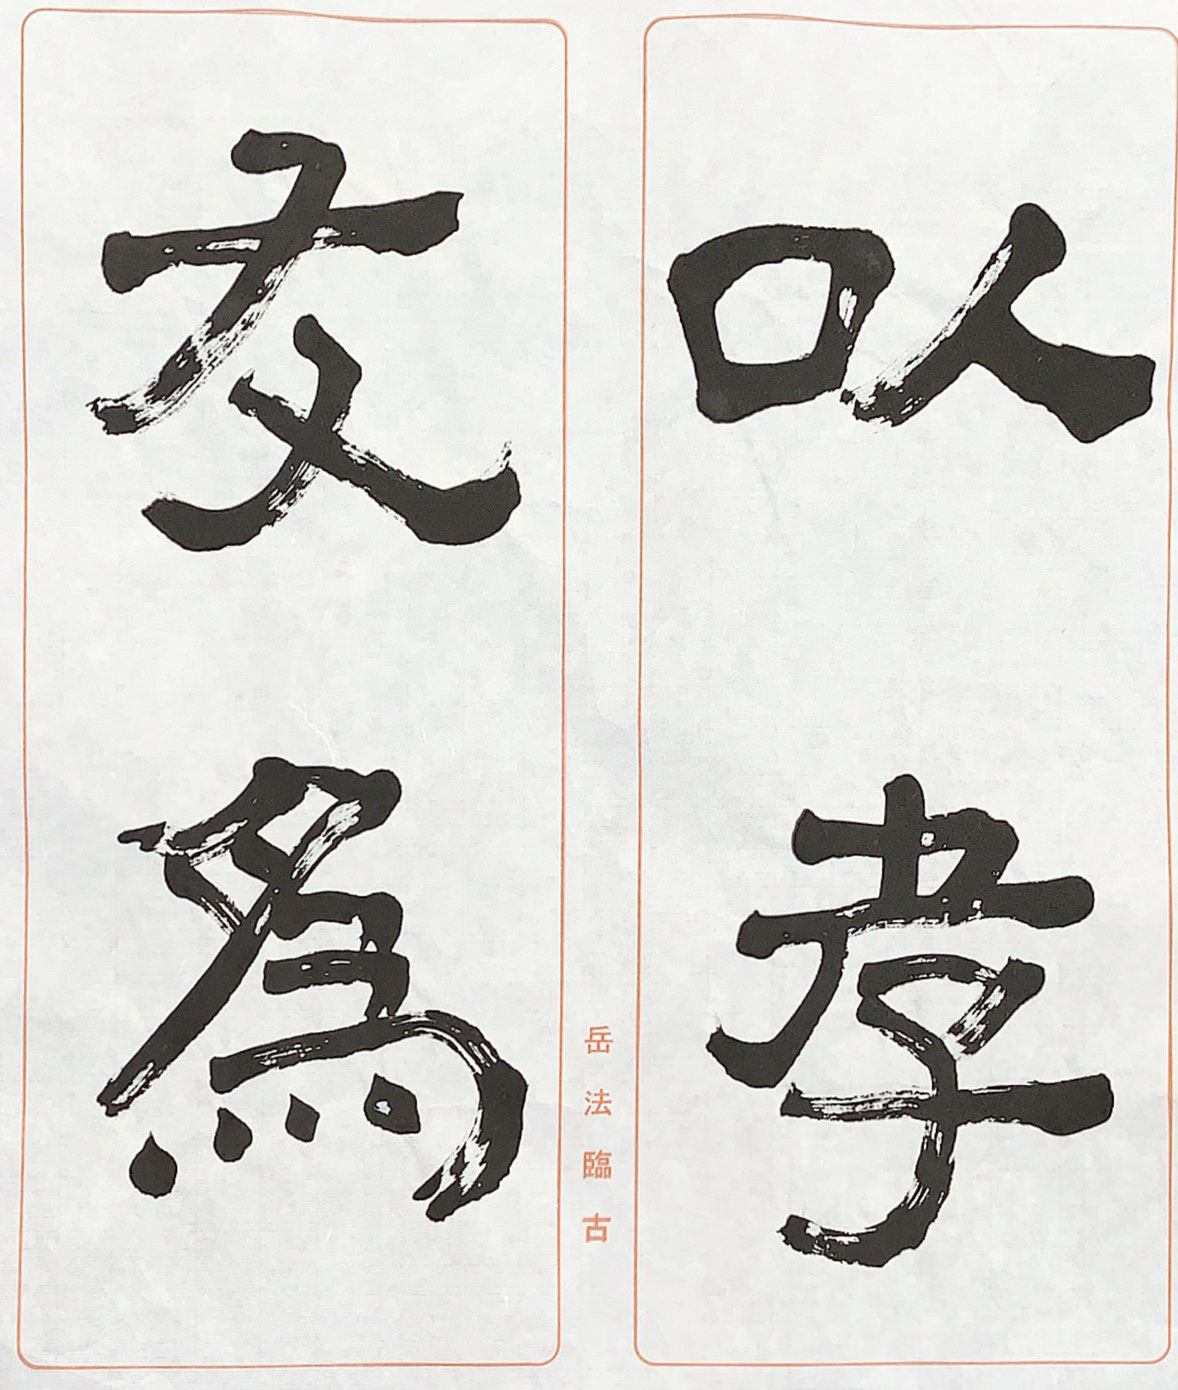 以孝
友為
岳法臨古